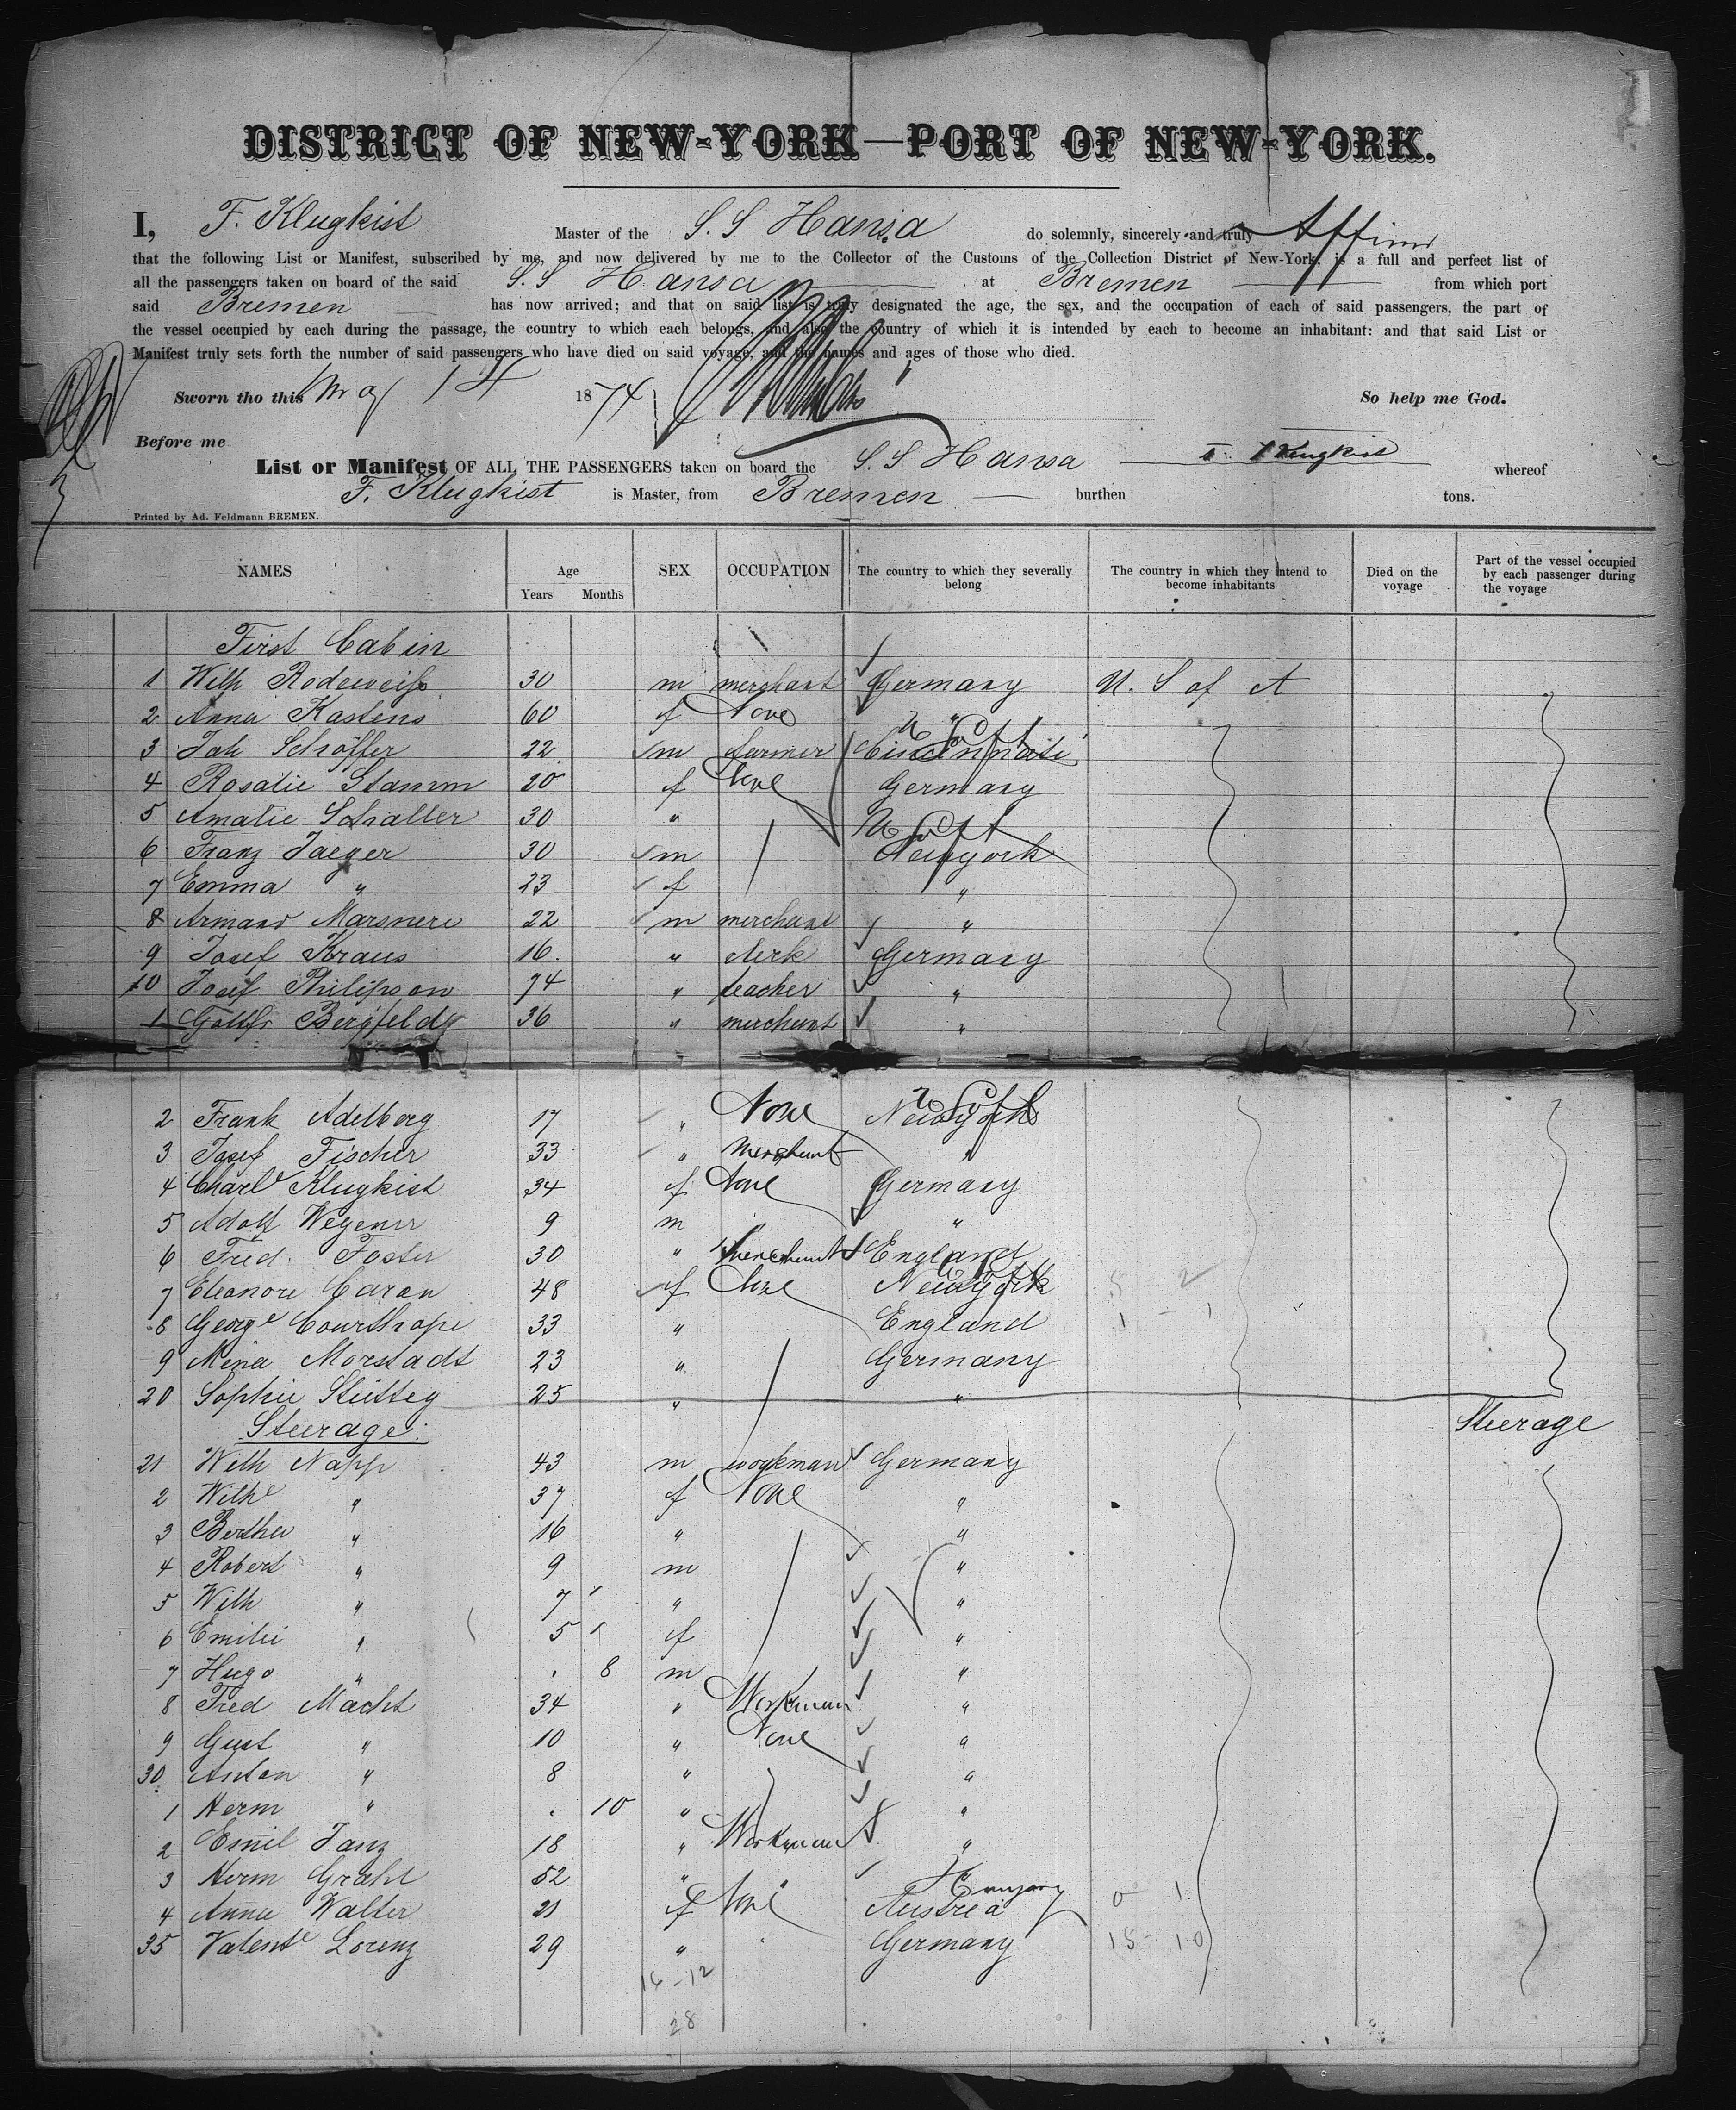 DISTRICT OF NEW-YORK—PORT OF NEW-YORK.
I, F. Klugkist Master of the S.S Hansa do solemnly, sincerely and truly Affirm
that the following List or Manifest, subscribed by me, and now delivered by me to the Collector of the Customs of the Collection District of New-York, is a full and perfect list of
all the passengers taken on board of the said S.S Hansa at Bremen from which port
said Bremen has now arrived; and that on said list is truly designated the age, the sex, and the occupation of each of said passengers, the part of
the vessel occupied by each during the passage, the country to which each belongs, and also the country of which it is intended by each to become an inhabitant: and that said List or
Manifest truly sets forth the number of said passengers who have died on said voyage, and the names and ages of those who died.
Sworn tho this May 1st 1874 So help me God.
Before me
F. Klugkist
List or Manifest OF ALL THE PASSENGERS taken on board the S.S Hansa whereof
F. Klugkist is Master, from Bremen burthen tons.
Printed by Ad. Feldmann BREMEN.
NAMES Age Years Months SEX OCCUPATION The country to which they severally belong The country in which they intend to become inhabitants Died on the voyage Part of the vessel occupied by each passenger during the voyage
First Cabin
1 Wilh Rodeweiss 30 m merchant Germany U. S of A
2 Anna Kastens 60 f None "
3 Joh Schöffer 22 m farmer Cincinnati U S of A
4 Rosalie Stamm 20 f None Germany
5 Amalie Schaller 30 "
6 Franz Jaeger 30 m Newyork U S of A
7 Emma " 23 f "
8 Armand Marsnere 22 m merchant "
9 Josef Kraus 16 " clerk Germany
10 Josef Philipson 74 " teacher "
1 Gottfr Bergfeldt 36 " merchant "
2 Frank Adelberg 17 " None Newyork U S of A
3 Josef Fischer 33 " Merchant "
4 Charle Klugkist 34 f None Germany
5 Adolf Wegener 9 m "
6 Fred. Foster 30 " Merchant England
7 Eleonore Caran 48 f None Newyork 5 - 2
8 George Courthope 33 " England 1 - 1
9 Mina Morstadt 23 " Germany
20 Sophie Stütteg 25 " "
Steerage Steerage
21 Wilh Napp 43 m workman Germany
2 Wilhe " 37 f None "
3 Bertha " 16 " "
4 Robert " 9 m "
5 Wilh " 7 " "
6 Emilie " 5 f "
7 Hugo " . 8 m "
8 Fred Macht 34 " Workman "
9 Gust " 10 " None "
30 Anton " 8 " "
1 Herm " . 10 " "
2 Emil Janz 18 " Workman "
3 Herm Grahl 52 " " "
4 Anna Walter 21 f None Austria Hungary 0 1
35 Valente Lorenz 29 " Germany 15 - 10
16 - 12
28